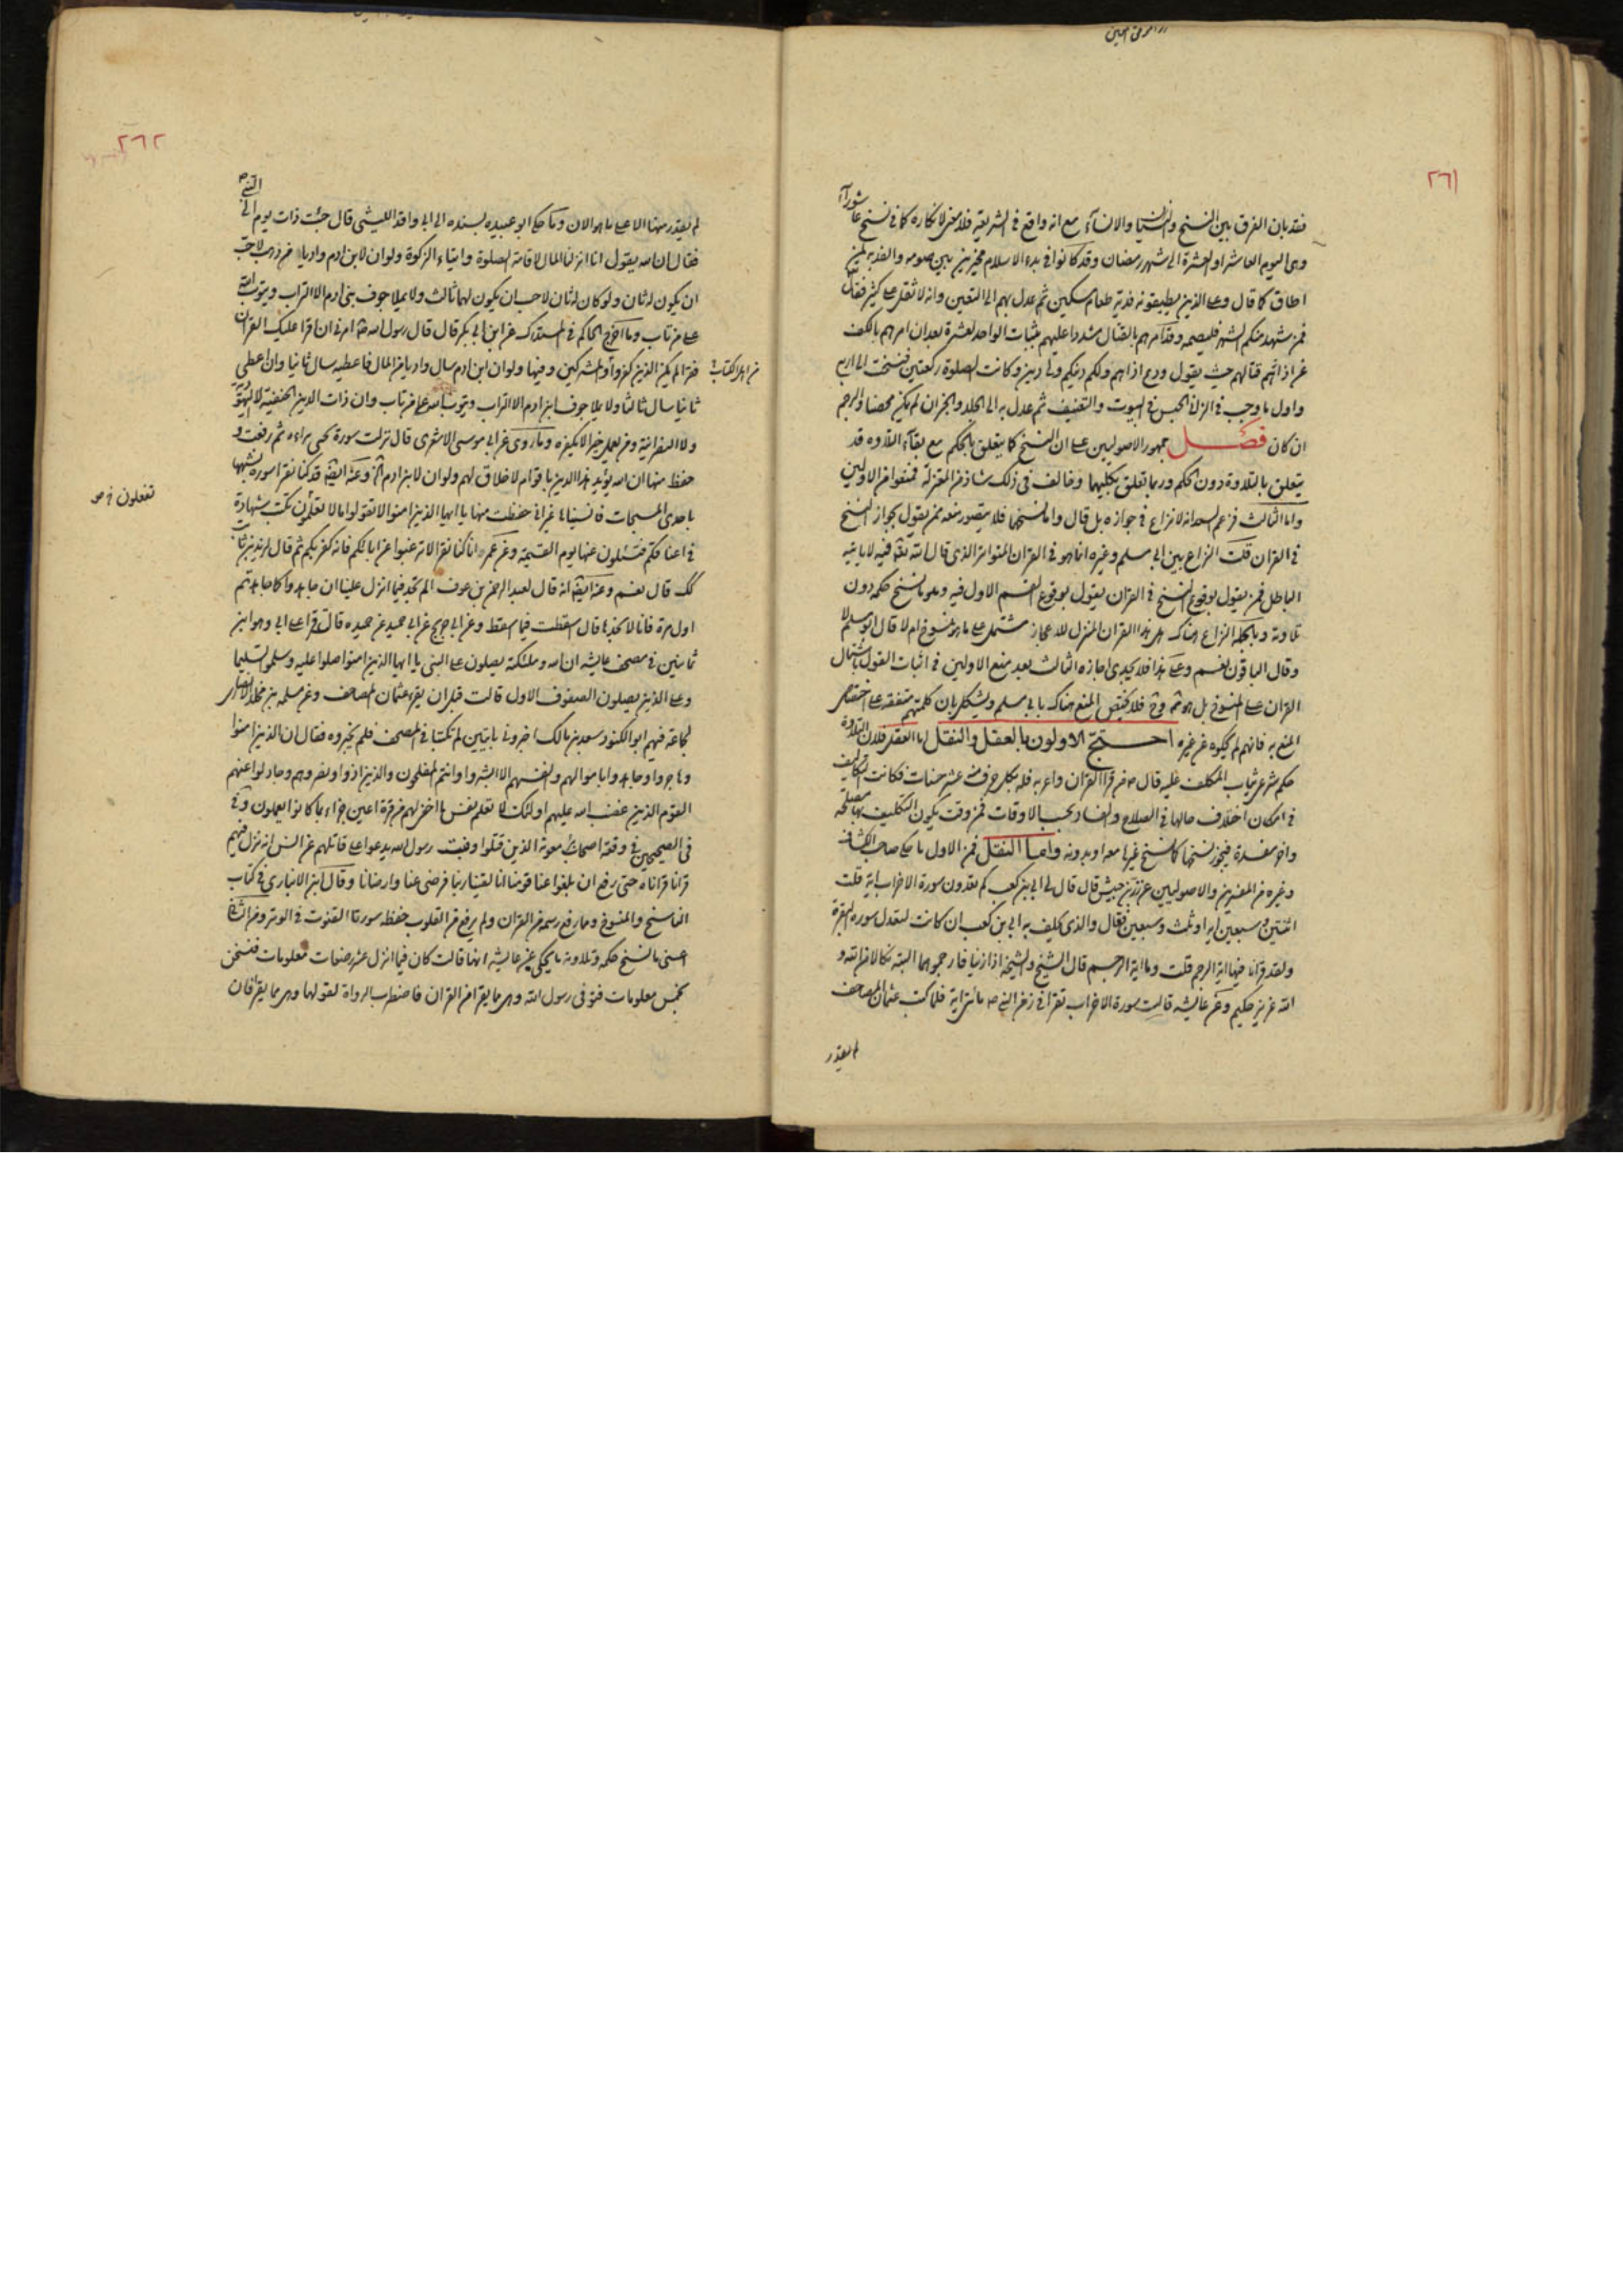 ٢٦١
فقد بان الفرق بين النسخ والنسيان والانساء مع انه واقع في الشريعة فلا معنى لانكاره كما في نسخ عاشوراء
وهي اليوم العاشر او العشرة الى شهر رمضان وقد كانوا في بدء الاسلام مخيرين بين صومه والفدية لمن
اطاق كما قال وعلى الذين يطيقونه فدية طعام مسكين ثم عدل بهم الى التعيين وانه لا ثقل على كثير فقال
فمن شهد منكم الشهر فليصمه وقد امرهم بالقتال مشددا عليهم بثبات الواحد لعشرة بعد ان امرهم بالكف
عن اذائهم قتالهم حيث يقول ودع اذاهم ولكم دينكم ولي دين وكانت الصلوة ركعتين فنسخت الى اربع
واول ما وجب في الزنا الحبس في البيوت والتعنيف ثم عدل به الى الجلد والجز ان لم يكن محصنا والرجم
ان كان فصل جمهور الاصوليين على ان النسخ كما يتعلق بالحكم مع بقاء التلاوه قد
يتعلق بالتلاوة دون الحكم وربما تعلق بكليهما وخالف في ذلك شاذ من المعتزلة فمنعوا من الاولين
واما الثالث فزعم السعد انه لا نزاع في جوازه بل قال واما نسخهما فلا يتصور منعه ممن يقول بجواز النسخ
في القران قلت النزاع بين ابي مسلم وغيره انما هو في القران المتواتر الذي قال الله تعالى فيه لا ياتيه
الباطل فمن يقول بوقوع النسخ في القران يقول بوقوع القسم الاول فيه وهو ما نسخ حكمه دون
تلاوته وبالجملة النزاع هناك هل هذا القران المنزل للاعجاز مشتمل على ما هو منسوخ ام لا قال ابو مسلم لا
وقال الباقون نعم وعلى هذا فلا يجدي اجازه الثالث بعد منع الاولين في اثبات القول باشتمال
القران على المنسوخ بل فلا يختص المنع هناك بابي مسلم ويشكل بان كلمتهم متفقه على اختصاص
المنع به فانهم لم يحكوه عن غيره احتج الاولون بالعقل والنقل اما العقل فلان التلاوة
حكم شرعي يثاب المكلف عليه قال ص من قرا القران واعربه فله بكل حرف منه عشر حسنات فكانت كالتكاليف
في امكان اختلاف حالها في الصلاح والفساد بحسب الاوقات فمن وقت يكون التكليف بها مصلحة
واخر مفسدة فيجوز نسخها كما نسخ غيرها معه او بدونه واما النقل فمن الاول ما حكى صاحب الكشاف
وغيره من المفسرين والاصوليين عن زر بن حبيش قال قال لي ابي بن كعب كم تعدون سورة الاحزاب اية قلت
اثنتين وسبعين اية او ثلث وسبعين فقال والذي يحلف به ابي بن كعب ان كانت لتعدل سوره البقرة
ولقد قرانا فيها اية الرجم قلت وما اية الرجم قال الشيخ والشيخة اذا زنيا فارجموهما البتة نكالا من الله و
الله عزيز حكيم وعن عايشه قالت سورة الاحزاب تقرا في زمن النبي ص مائتي اية فلما كتب عثمان المصاحف
لم نقدر
٢٦٢
لم نقدر منها الا على ما هو الان وما حكى ابو عبيده بسنده الى ابي واقد الليثي قال جئت ذات يوم الى النبي ص
فقال ان الله يقول انا انزلنا المال لاقامة الصلوة وايتاء الزكوة ولو ان لابن ادم واديا من ذهب لاحب
ان يكون له ثان ولو كان له ثان لاحب ان يكون لهما ثالث ولا يملا جوف بني ادم الا التراب ويتوب الله
على من تاب وما اخرج الحاكم في المستدرك عن ابن ابي بكر قال قال رسول الله ص ان الله امرني ان اقرا عليك القران
فقرا لم يكن الذين كفروا والمشركين وفيها ولو ان ابن ادم سال واديا من المال فاعطيه سال ثانيا وان اعطي
من اهل الكتاب
ثانيا سال ثالثا ولا يملا جوف ابن ادم الا التراب ويتوب الله على من تاب وان ذات الدين الحنفية لا اليهودية
ولا النصرانية ومن يعمل خيرا لا يكفره وما روى عن ابي موسى الاشعري قال نزلت سورة نحو براءه ثم رفعت و
حفظ منها ان الله يؤيد هذا الدين باقوام لا خلاق لهم ولو ان لابن ادم الخ وعنه ايضا قد كنا نقرا سورة نشبهها
باحدى المسبحات فانسيناها غير اني حفظت منها يا ايها الذين امنوا لا تقولوا ما لا تعلمون تكتب شهادة
تفعلون خ ص
في اعناقكم فتسئلون عنها يوم القيمة وعن عمر انا كنا نقرا لا ترغبوا عن ابائكم فانه كفر بكم ثم قال لزيد بن ثابت
كك قال نعم وعنه ايضا انه قال لعبد الرحمن بن عوف الم تجد فيما انزل علينا ان جاهدوا كما جاهدتم
اول مرة فانا لا نجدها قال اسقطت فيما اسقط وعن ابي جريج عن ابي حميد عن حميده قالت قرا علي ابي وهو ابن
ثمانين في مصحف عايشه ان الله وملئكته يصلون على النبي يا ايها الذين امنوا صلوا عليه وسلموا تسليما
وعلى الذين يصلون الصفوف الاول قالت قبل ان يغير عثمان المصاحف وعن مسلمه بن مخلد الانصاري
لجماعة فيهم ابو الكنود سعد بن مالك اخبروني بايتين لم تكتبا في المصحف فلم يخبروه فقال ان الذين امنوا
وهاجروا وجاهدوا باموالهم وانفسهم الا ابشروا وانتم المفلحون والذين اووا ونصروهم وجادلوا عنهم
القوم الذين غضب الله عليهم اولئك لا تعلم نفس ما اخفي لهم من قرة اعين جزاء بما كانوا يعملون وفي
في الصحيحين في وقعة اصحاب بئر معونة الذين قتلوا وقنت رسول الله يدعوا على قاتلهم عن انس انه نزل فيهم
قرانا قراناه حتى رفع ان بلغوا عنا قومنا انا لقينا ربنا فرضي عنا وارضانا وقال ابن الانباري في كتاب
الناسخ والمنسوخ ومما رفع رسمه من القران ولم يرفع من القلوب حفظه سورتا القنوت في الوتر ومن الثالث
اعني ما نسخ حكمه وتلاوته ما يحكى عن عايشه انها قالت كان فيما انزل عشر رضعات معلومات فنسخن
بخمس معلومات فتوفى رسول الله وهن مما يقرا من القران فاضطرب الرواة لقولها وهن مما يقرا فان